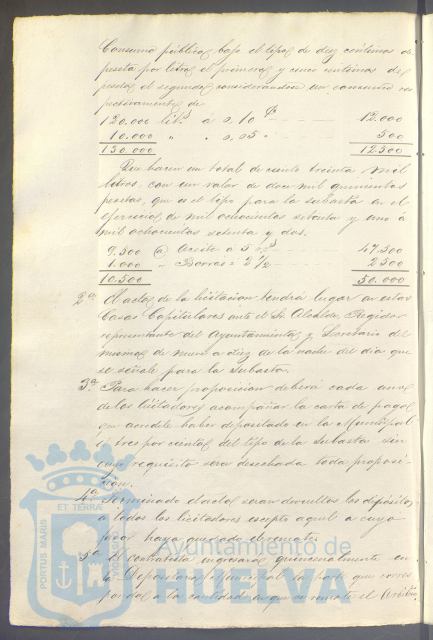 Consumo público, bajo el tipo de diez centimos de
peseta por litro el primero, y cinco centimos de
peseta el segundo, considerandose un consumo res
pectivamente de
120.000 lit.s á 0,10 P.s 12.000
10.000 " " 0,05 " 500
130.000 12500
Que hacen un total de ciento treinta mil
litros, con un valor de doce mil quinientas
pesetas, que es el tipo para la subasta en el
ejercicio de mil ochocientos setenta y uno á
mil ochocientos setenta y dos.
9.500 @ Aceite á 5 P.s 47.500
1.000 " Borras " 2 1/2 2500
10.500 50.000
2.a El acto de la licitacion tendrá lugar en estas
Casas Capitulares ante el Sr. Alcalde, Regidor
representante del Ayuntamiento y Secretario del
mismo, de nueve a diez de la noche del dia que
se señale para la Subasta.
3.a Para hacer proposicion deberá cada uno
de los licitadores acompañar la carta de pago
que acredite haber depositado en la Municipal
el tres por ciento del tipo de la Subasta sin
cuyo requisito será desechada toda proposi-
cion.
4.a Terminado el acto seran devueltos los depósitos
a todos los licitadores escepto aquel a cuyo
favor haya quedado el remate.
5.a El contratista ingresará quincenalmente en
la Depositaria Municipal la parte que corres
ponda a la cantidad en que se remate el Arbitrio
PORTUS MARIS
ET TERRÆ
Ayuntamiento de
HUELVA